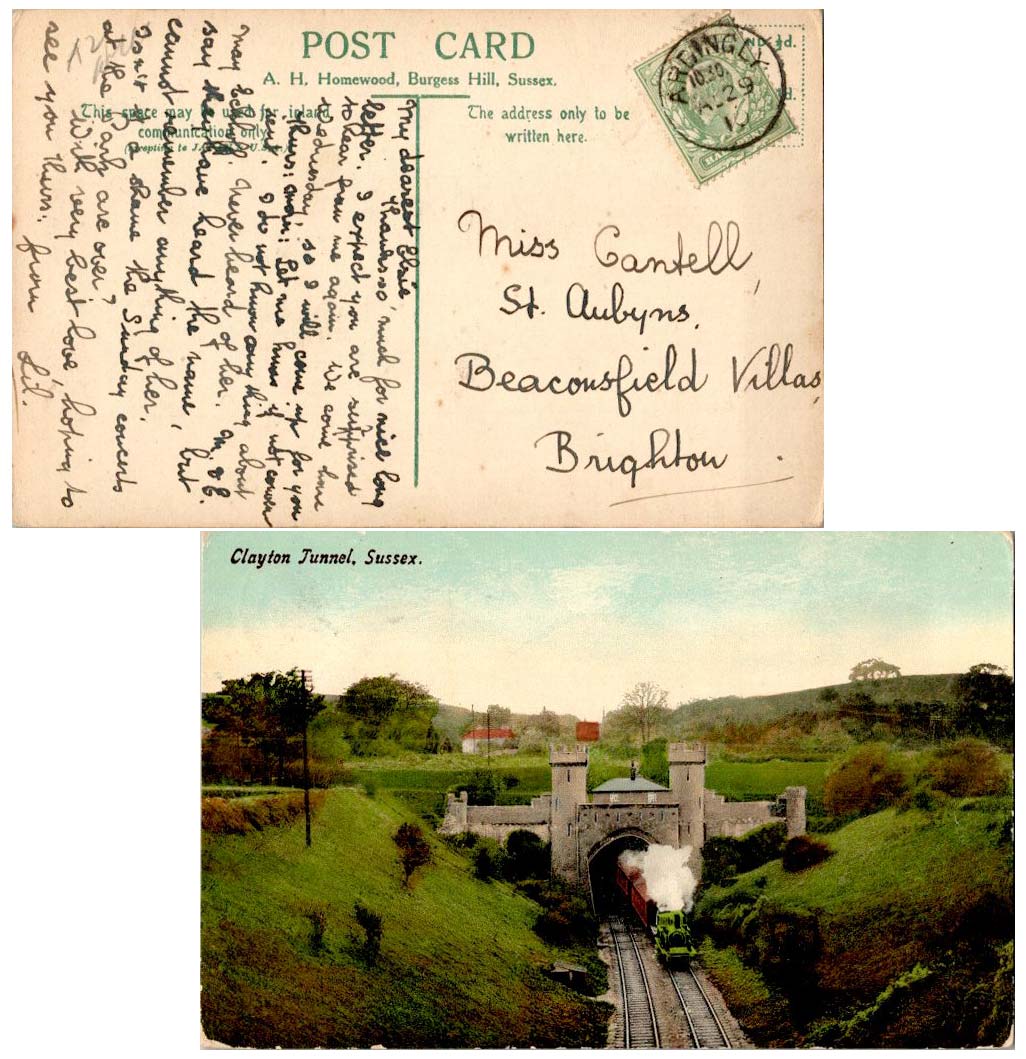 POST CARD
A. H. Homewood, Burgess Hill, Sussex.
This space may be used for inland
communication only.
The address only to be
written here.
ARDINGLY
10.30
AU 29
10
½d.
My dearest Elsie
Thanks so much for nice long
letter. I expect you are surprised
to hear from me again. We come home
Wednesday so I will come up for you
Thurs: morn: Let me know if not conven
ient. I do not know anything about
May Echoll never heard of her. M. & E.
say they have heard the name, but
cannot remember anything of her.
Isn't it a shame the Sunday concerts
at the Park are over?
With very best love, hoping to
see you Thurs. from
Lil.
Miss Cantell,
St. Aubyns,
Beaconsfield Villas,
Brighton
Clayton Tunnel, Sussex.